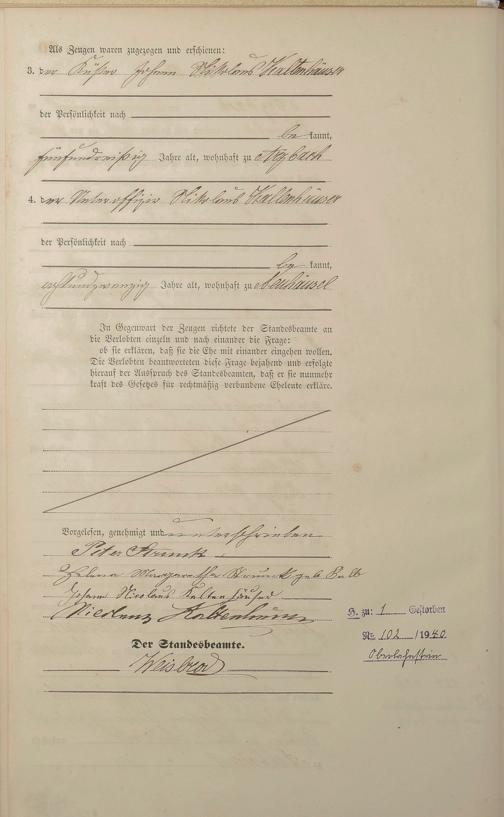 Als Zeugen waren zugezogen und erschienen:
3. der Küfer Johann Nikolaus Kaltenhäuser
der Persönlichkeit nach
be kannt,
fünfunddreißig Jahre alt, wohnhaft zu Arzbach
4. der Unteroffizier Nikolaus Kaltenhäuser
der Persönlichkeit nach
be kannt,
achtundzwanzig Jahre alt, wohnhaft zu Neuhäusel
In Gegenwart der Zeugen richtete der Standesbeamte an
die Verlobten einzeln und nach einander die Frage:
ob sie erklären, daß sie die Ehe mit einander eingehen wollen.
Die Verlobten beantworteten diese Frage bejahend und erfolgte
hierauf der Ausspruch des Standesbeamten, daß er sie nunmehr
kraft des Gesetzes für rechtmäßig verbundene Eheleute erkläre.
Vorgelesen, genehmigt und unterschrieben
Peter Strunk
Helena Margaretha Strunk geb.
Johann Nicolaus Kaltenhäuser
Kaltenhäuser
H. zu: 1 Gestorben
Nr. 102 / 1940
Oberlahnstein
Der Standesbeamte.
Weisbrod